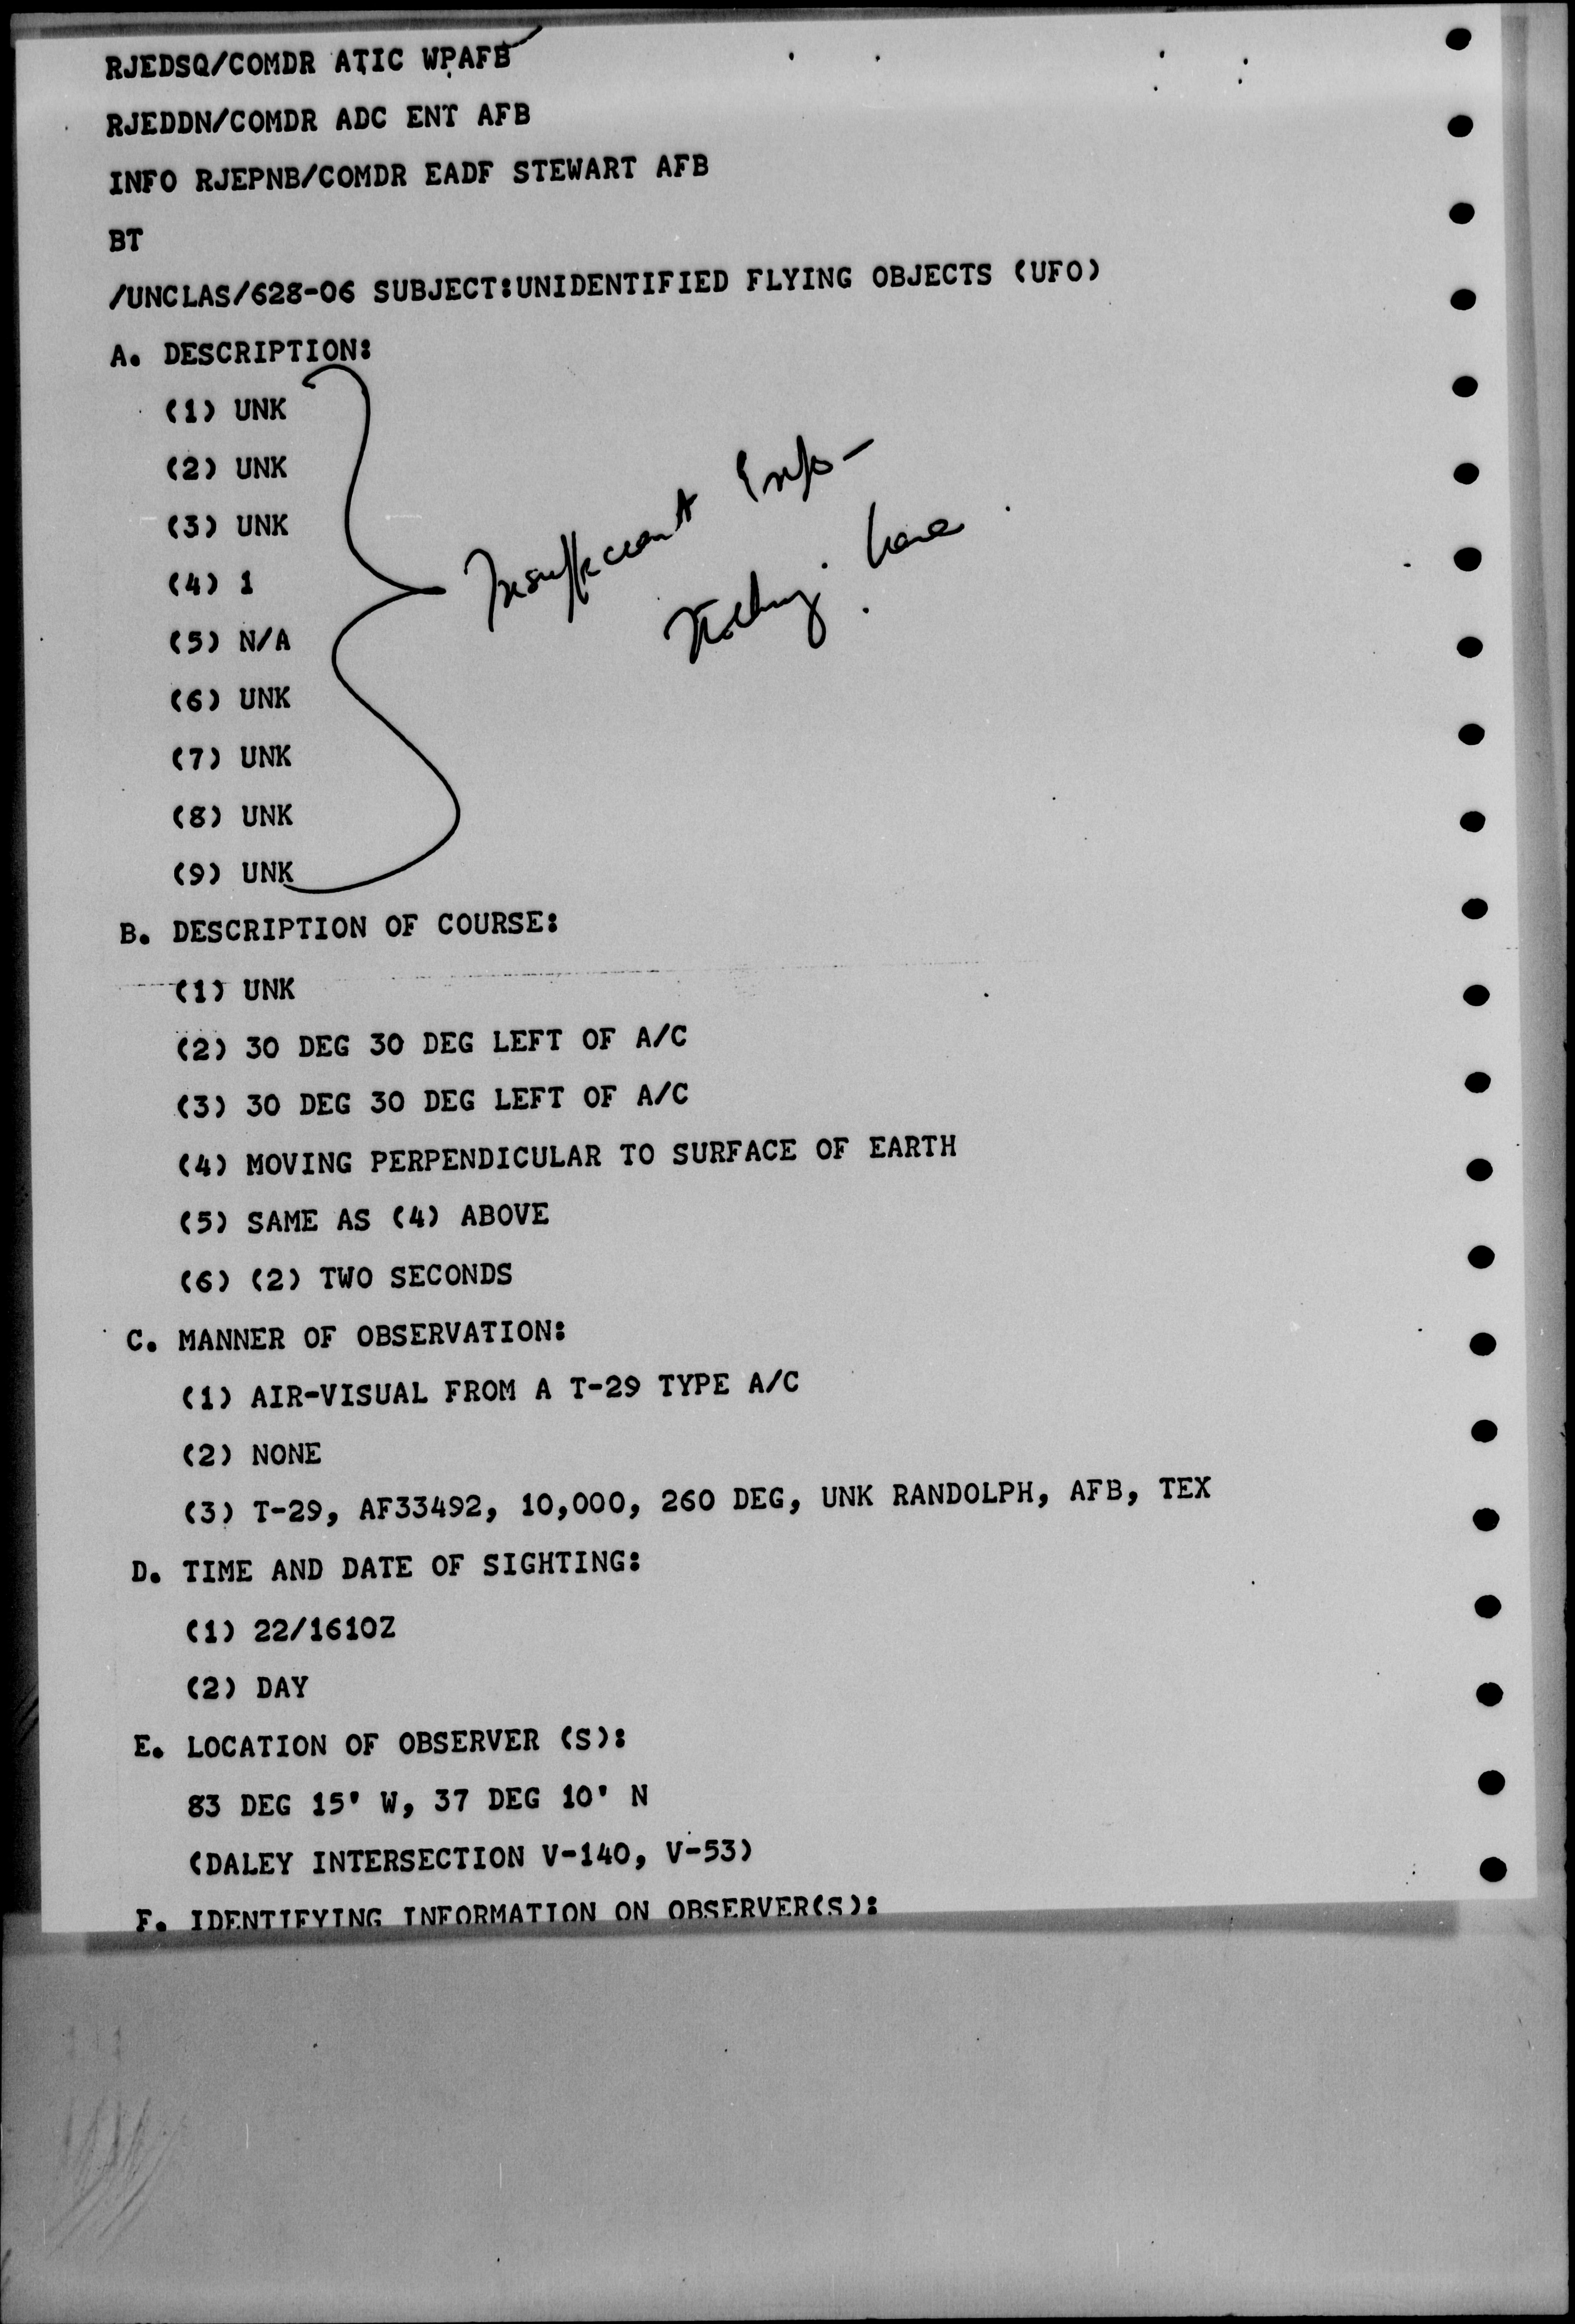 RJEDSQ/COMDR ATIC WPAFB
RJEDDN/COMDR ADC ENT AFB
INFO RJEPNB/COMDR EADF STEWART AFB
BT
/UNCLAS/628-06 SUBJECT:UNIDENTIFIED FLYING OBJECTS (UFO)
A. DESCRIPTION:
(1) UNK
(2) UNK
(3) UNK
(4) 1
(5) N/A
(6) UNK
(7) UNK
(8) UNK
(9) UNK
Insufficient Info -
Nothing here.
B. DESCRIPTION OF COURSE:
(1) UNK
(2) 30 DEG 30 DEG LEFT OF A/C
(3) 30 DEG 30 DEG LEFT OF A/C
(4) MOVING PERPENDICULAR TO SURFACE OF EARTH
(5) SAME AS (4) ABOVE
(6) (2) TWO SECONDS
C. MANNER OF OBSERVATION:
(1) AIR-VISUAL FROM A T-29 TYPE A/C
(2) NONE
(3) T-29, AF33492, 10,000, 260 DEG, UNK RANDOLPH, AFB, TEX
D. TIME AND DATE OF SIGHTING:
(1) 22/1610Z
(2) DAY
E. LOCATION OF OBSERVER (S):
83 DEG 15' W, 37 DEG 10' N
(DALEY INTERSECTION V-140, V-53)
F. IDENTIFYING INFORMATION ON OBSERVER(S):